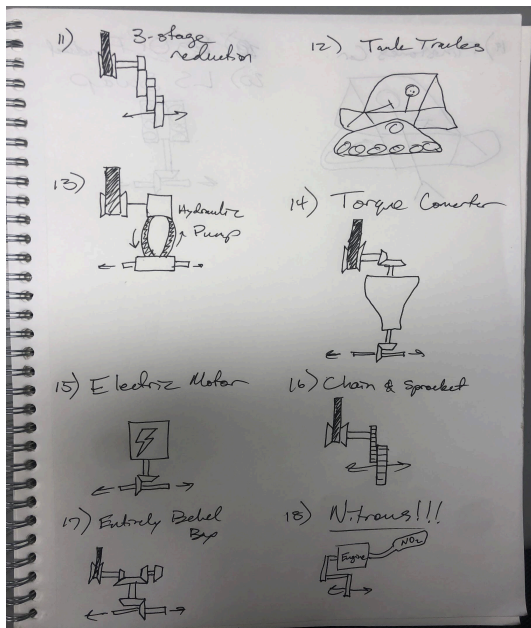 11) 3-stage
reduction
12) Tank Tracks
13)
Hydraulic
Pump
14) Torque Converter
15) Electric Motor
16) Chain & Sprocket
17) Entirely Bebel
Box
18) Nitrous!!!
Engine
NO2